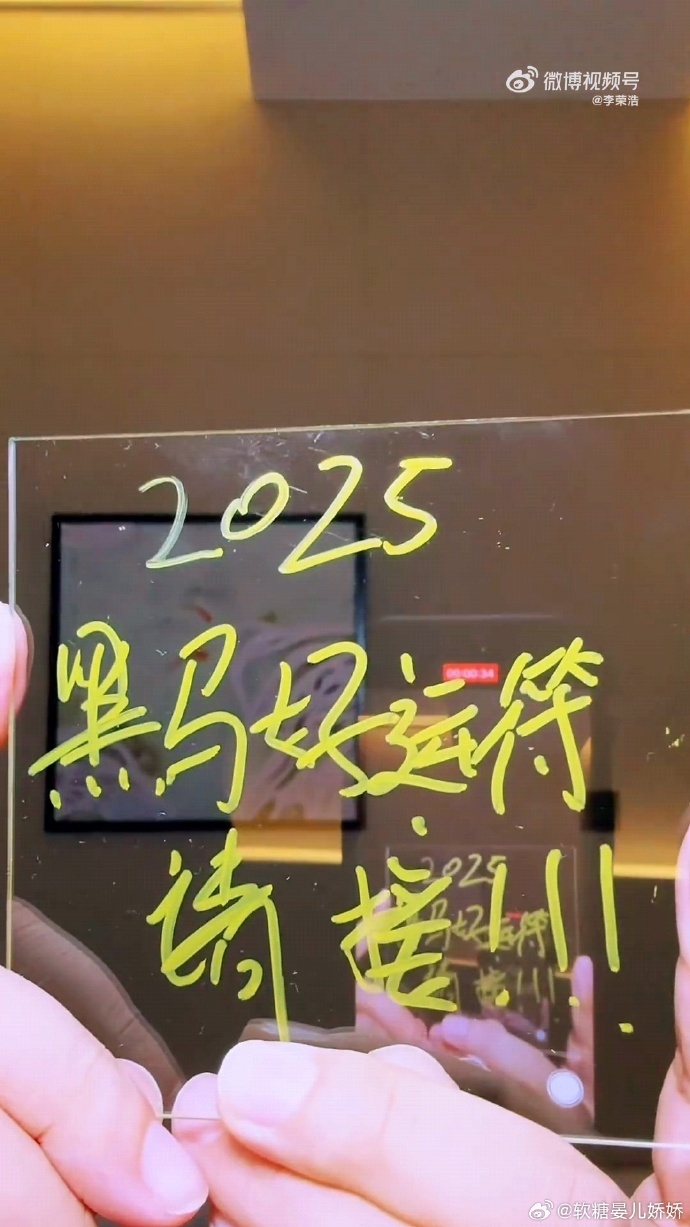 微博视频号
@李荣浩
2025
黑马好运符
00:00:34
请接!!!
2025
马好运符
接!!!
@软糖晏儿娇娇